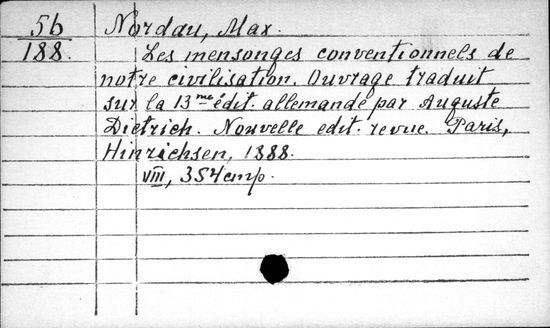 56 Nordau, Max.
188. Les mensonges conventionnels de
notre civilisation. Ouvrage traduit
sur la 13me édit. allemande par Auguste
Dietrich. Nouvelle edit. revue. Paris,
Hinrichsen, 1888.
VIII, 354